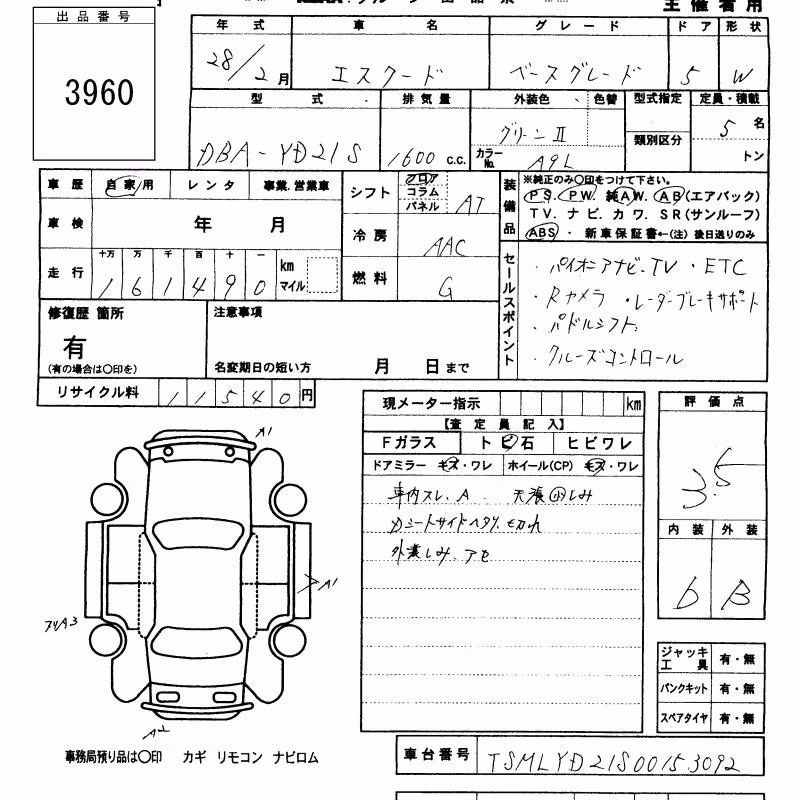 主催者用
出品番号
3960
年式 車名 グレード ドア 形状
28/2月 エスクード ベースグレード 5 W
型式 排気量 外装色 色替 型式指定 定員・積載
類別区分
DBA-YD21S 1600 C.C. グリーンⅡ 5名
カラーNo. A9L トン
車歴 自家/用 レンタ 事業.営業車
シフト フロア コラム パネル AT
装備品
※純正のみ〇印をつけて下さい。
PS. PW. 純AW. AB(エアバック)
TV. ナビ. カワ. SR(サンルーフ)
ABS ・ 新車保証書←(注) 後日送りのみ
車検 年 月
冷房 AAC
走行 十万 万 千 百 十 一 km マイル
161490
燃料 G
セールスポイント
・パイオニアナビ.TV ・ETC
・Rカメラ ・レーダーブレーキサポート
・パドルシフト
・クルーズコントロール
修復歴 箇所
有
(有の場合は〇印を)
注意事項
名変期日の短い方 月 日まで
リサイクル料 11540円
現メーター指示 km
【査定員記入】
Fガラス トビ石 ヒビワレ
ドアミラー キズ・ワレ ホイール(CP) キズ・ワレ
車内スレ.A 天張小しみ
シートサイドヘタリ.切れ
外装しみ.アセ
評価点
3.5
内装 外装
b B
A1
A1
アリA3
A2
ジャッキ工具 有・無
パンクキット 有・無
スペアタイヤ 有・無
事務局預り品は〇印 カギ リモコン ナビロム
車台番号 TSMLYD21S00153092